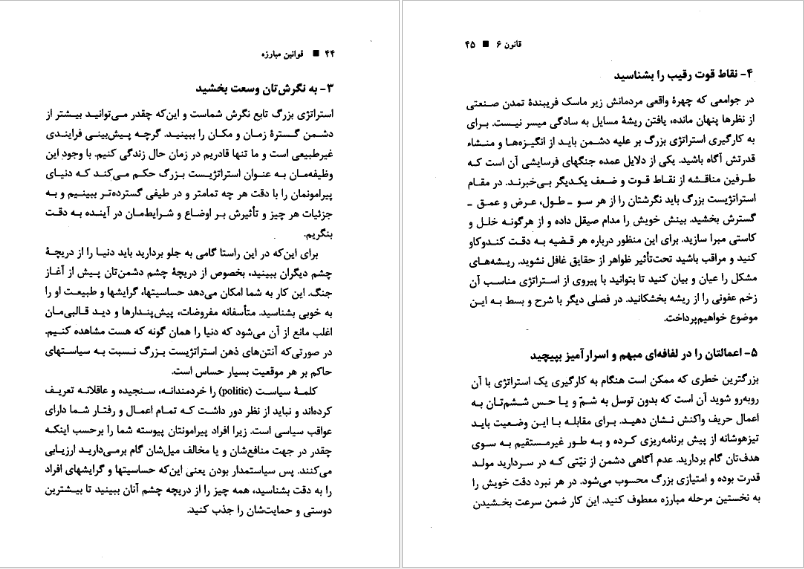 ۴۴ ■ قوانین مبارزه
۳- به نگرش‌تان وسعت بخشید
استراتژی بزرگ تابع نگرش شماست و این‌که چقدر می‌توانید بیشتر از
دشمن گسترهٔ زمان و مکان را ببینید. گرچه پیش‌بینی فرایندی
غیرطبیعی است و ما تنها قادریم در زمان حال زندگی کنیم. با وجود این
وظیفه‌مان به عنوان استراتژیست بزرگ حکم می‌کند کـه دنیـای
پیرامونمان را با دقت هر چه تمامتر و در طیفی گسترده‌تر ببینیم و به
جزئیات هر چیز و تأثیرش بر اوضاع و شرایط‌مان در آینده به دقت
بنگریم.
برای این‌که در این راستا گامی به جلو بردارید باید دنیا را از دریچهٔ
چشم دیگران ببینید، بخصوص از دریچهٔ چشم دشمن‌تان پیش از آغاز
جنگ. این کار به شما امکان می‌دهد حساسیتها، گرایشها و طبیعت او را
به خوبی بشناسید. متأسفانه مفروضات، پیش‌پندارها و دیـد قالبی‌مان
اغلب مانع از آن می‌شود که دنیا را همان گونه که هست مشاهده کنیم.
در صورتی‌که آنتن‌های ذهن استراتژیست بـزرگ نسبت بـه سیاستهای
حاکم بر هر موقعیت بسیار حساس است.
کلمهٔ سیاست (politic) را خردمندانـه، سنجیده و عاقلانـه تعریف
کرده‌اند و نباید از نظر دور داشت کـه تمـام اعمـال و رفتـار شمـا دارای
عواقب سیاسی است. زیرا افراد پیرامونتان پیوسته شما را برحسب اینکـه
چقدر در جهت منافع‌شان و یا مخالف میل‌شان گام برمی‌داریـد ارزیابی
می‌کنند. پس سیاستمدار بودن یعنی این‌که حساسیتها و گرایشهای افراد
را به دقت بشناسید، همه چیز را از دریچه چشم آنان ببینید تا بیشترین
دوستی و حمایت‌شان را جذب کنید.
قانون ۶ ■ ۴۵
۴- نقاط قوت رقیب را بشناسید
در جوامعی که چهرهٔ واقعی مردمانش زیر ماسک فریبندهٔ تمدن صنعتی
از نظرها پنهان مانده، یافتن ریشهٔ مسایل به سادگی میسر نیست. بـرای
به کارگیری استراتژی بزرگ بر علیه دشمن باید از انگیزه‌هـا و منشـاء
قدرتش آگاه باشید. یکی از دلایل عمده جنگهای فرسایشی آن است کـه
طرفین مناقشه از نقاط قـوت و ضعف یکدیگر بی‌خبرند. در مقـام
استراتژیست بزرگ باید نگرشتان را از هر سو ـ طـول، عرض و عمق ـ
گسترش بخشید. بینش خویش را مدام صیقل داده و از هرگونه خلل و
کاستی مبرا سازید. برای این منظور درباره هر قضیـه به دقت کندوکاو
کنید و مراقب باشید تحت‌تأثیر ظواهر از حقایق غافل نشوید. ریشه‌های
مشکل را عیان و بیان کنید تا بتوانید با پیروی از استراتژی مناسب آن
زخم عفونی را از ریشه بخشکانید. در فصلی دیگر با شرح و بسط به این
موضوع خواهیم‌پرداخت.
۵- اعمالتان را در لفافه‌ای مبهم و اسرارآمیز بپیچید
بزرگترین خطری که ممکن است هنگام به کارگیری یک استراتژی با آن
روبه‌رو شوید آن است که بدون توسل به شمّ و یـا حـس ششم‌تـان بـه
اعمال حریف واکنش نشان دهیـد. برای مقابلـه بـا ایـن وضعیت بایـد
تیزهوشانه از پیش برنامه‌ریزی کـرده و بـه طور غیرمستقیم به سوی
هدف‌تان گام بردارید. عدم آگاهی دشمن از نیّتی که در سـر‌داریـد مولد
قدرت بوده و امتیازی بزرگ محسوب می‌شود. در هر نبرد دقت خویش را
به نخستین مرحله مبارزه معطوف کنید. این کار ضمن سرعت بخشیدن